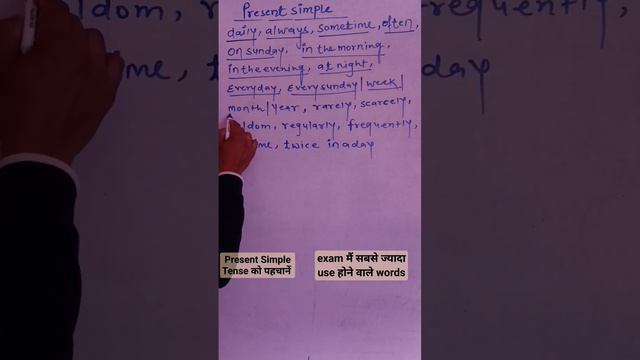 Present simple
daily, always, sometime, often,
on sunday, in the morning,
in the evening, at night,
Everyday, Every sunday | week |
month | year, rarely, scarcely,
regularly, frequently,
twice in a day
Present Simple
Tense को पहचानें
exam मैं सबसे ज्यादा
use होने वाले words